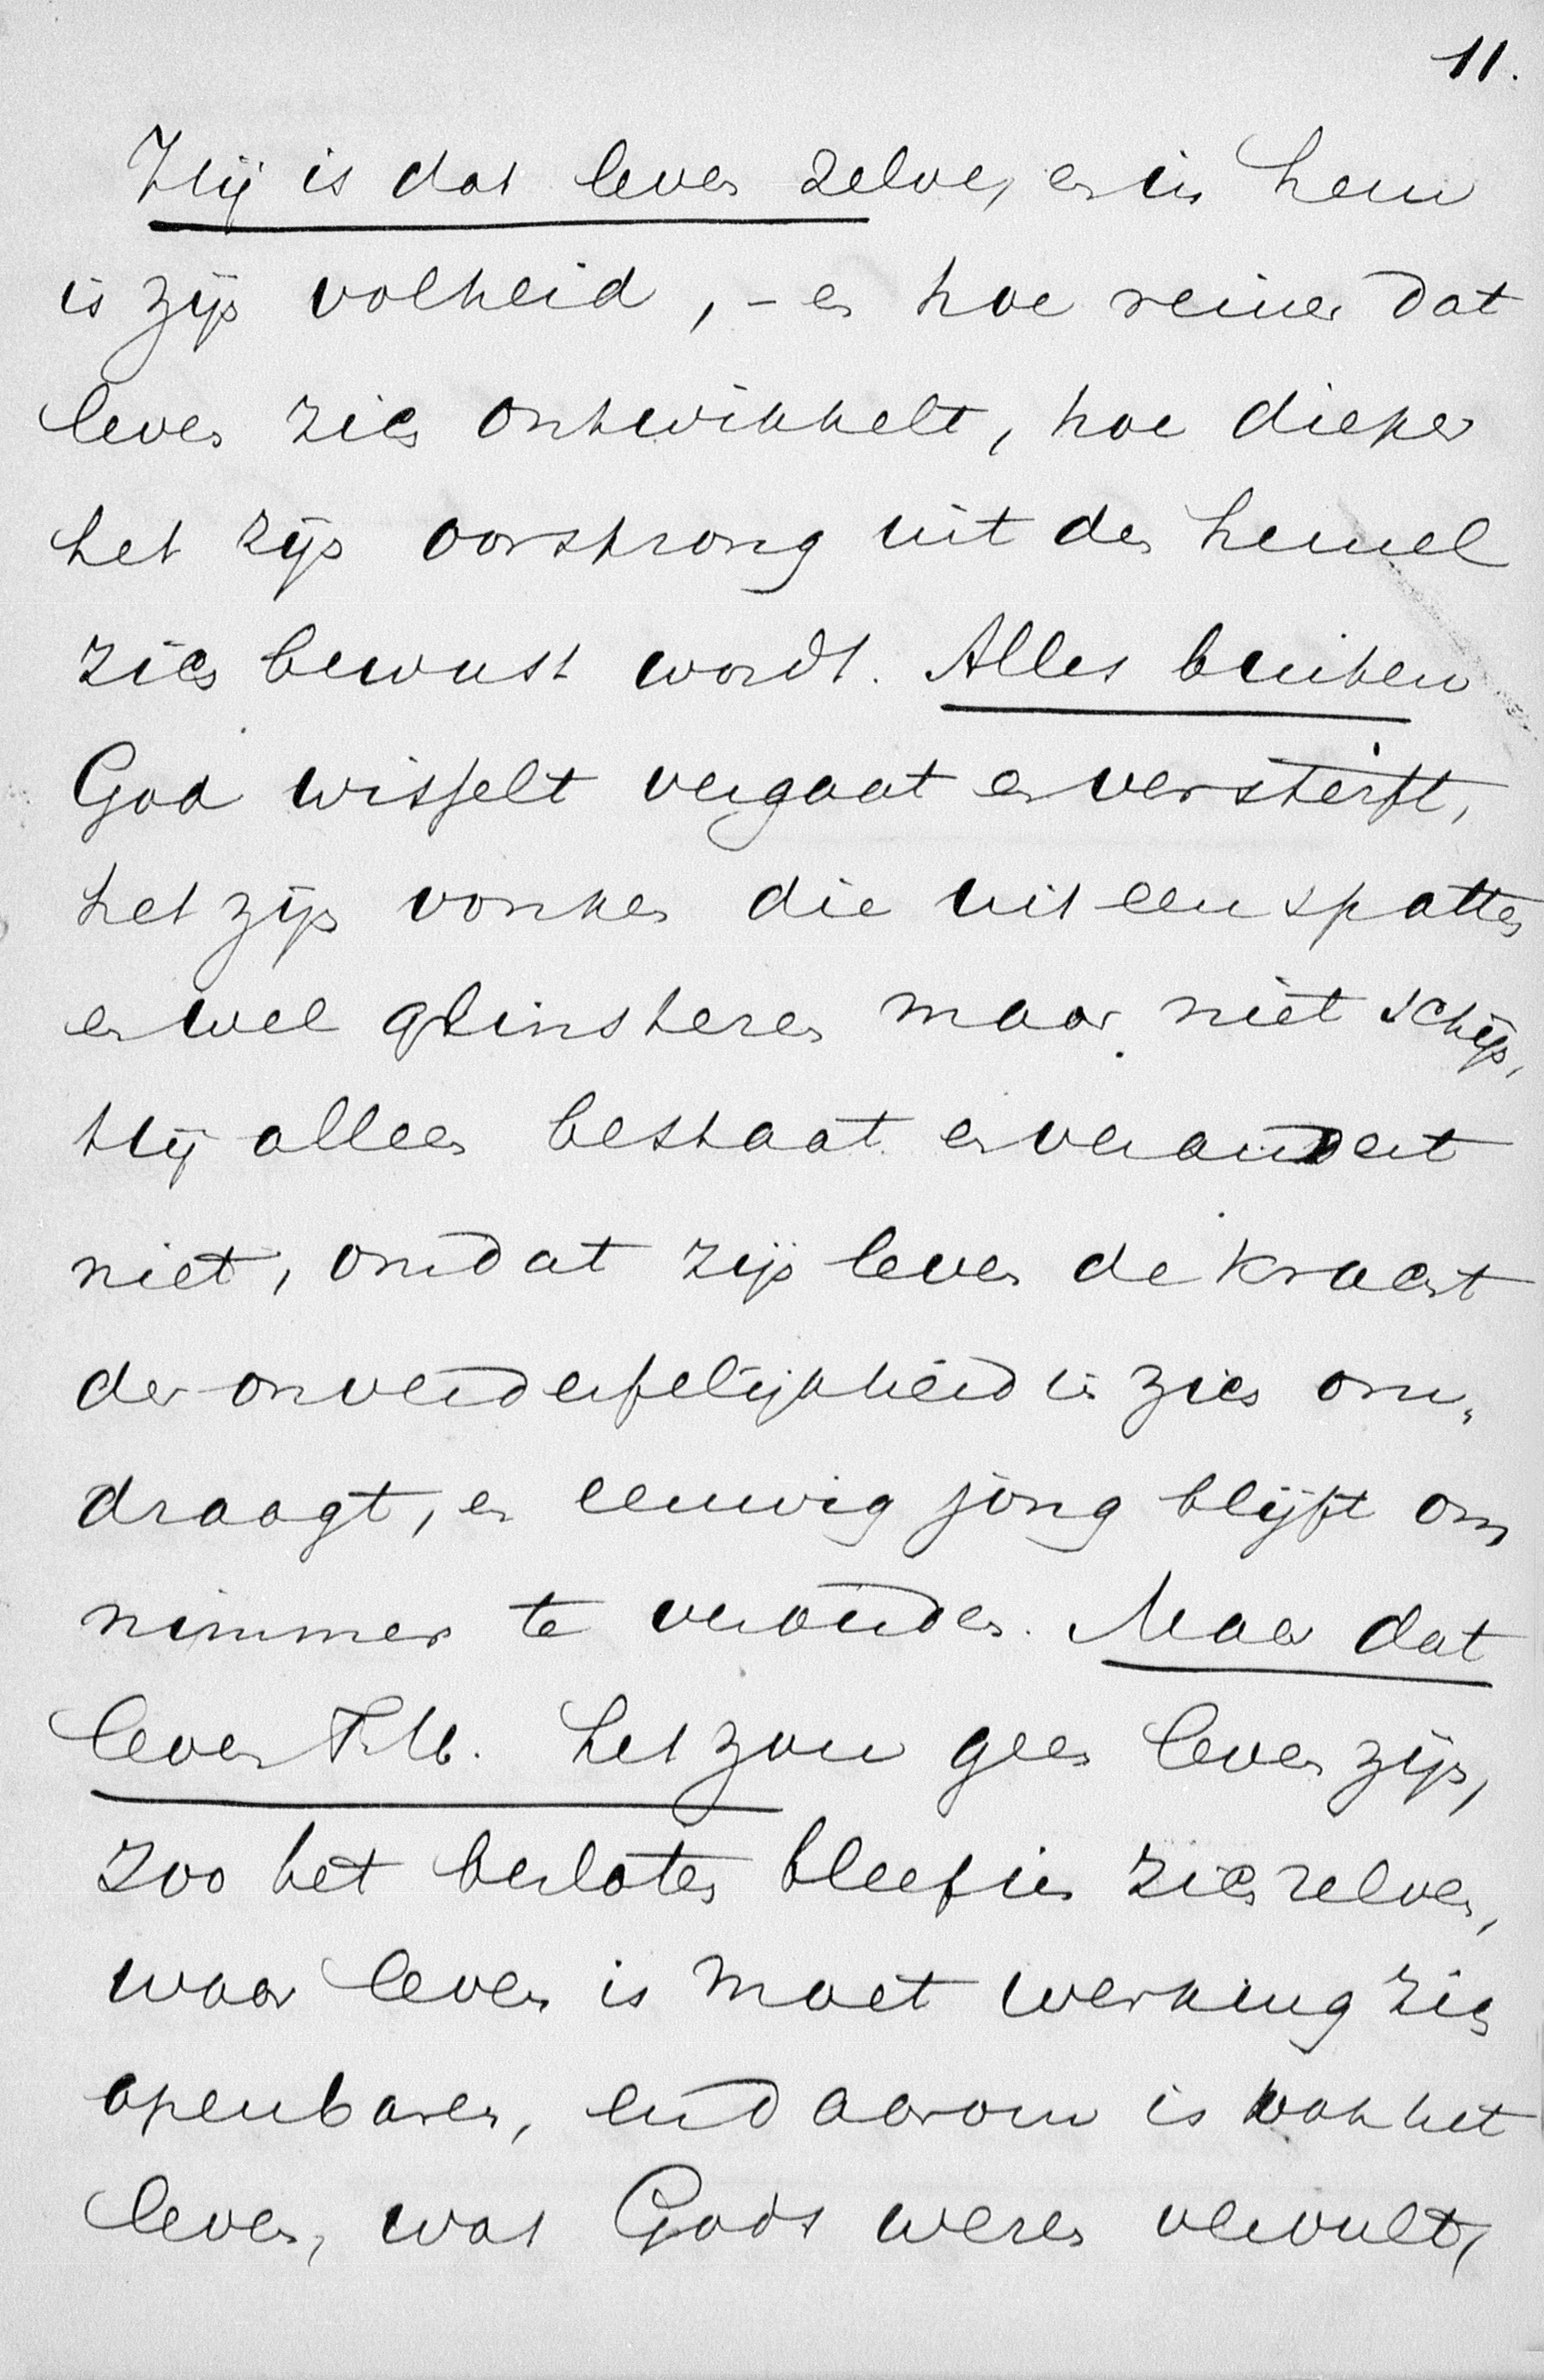 11.
Hij is dat leven zelve, en in hem
is zijn volheid, - en hoe reiner dat
leven zich ontwikkelt, hoe dieper
het zijn oorsprong uit den hemel
zich bewust wordt. Alles buiten
God wisselt vergaat en versterft,
het zijn vonken die uiteenspatten
en wel glinsteren maar niet schijn,
Hij alleen bestaat en verandert
niet, omdat zijn leven de kracht
der onverderfelijkheid in zich om„
draagt, en eeuwig jong blijft om
nimmer te verouden. Maar dat
leven T. M. het zou geen leven zijn,
zoo het besloten bleef in zich zelven,
waar leven is moet werking zich
openbaren, en daarom is ook het
leven, wat Gods wezen vervult,